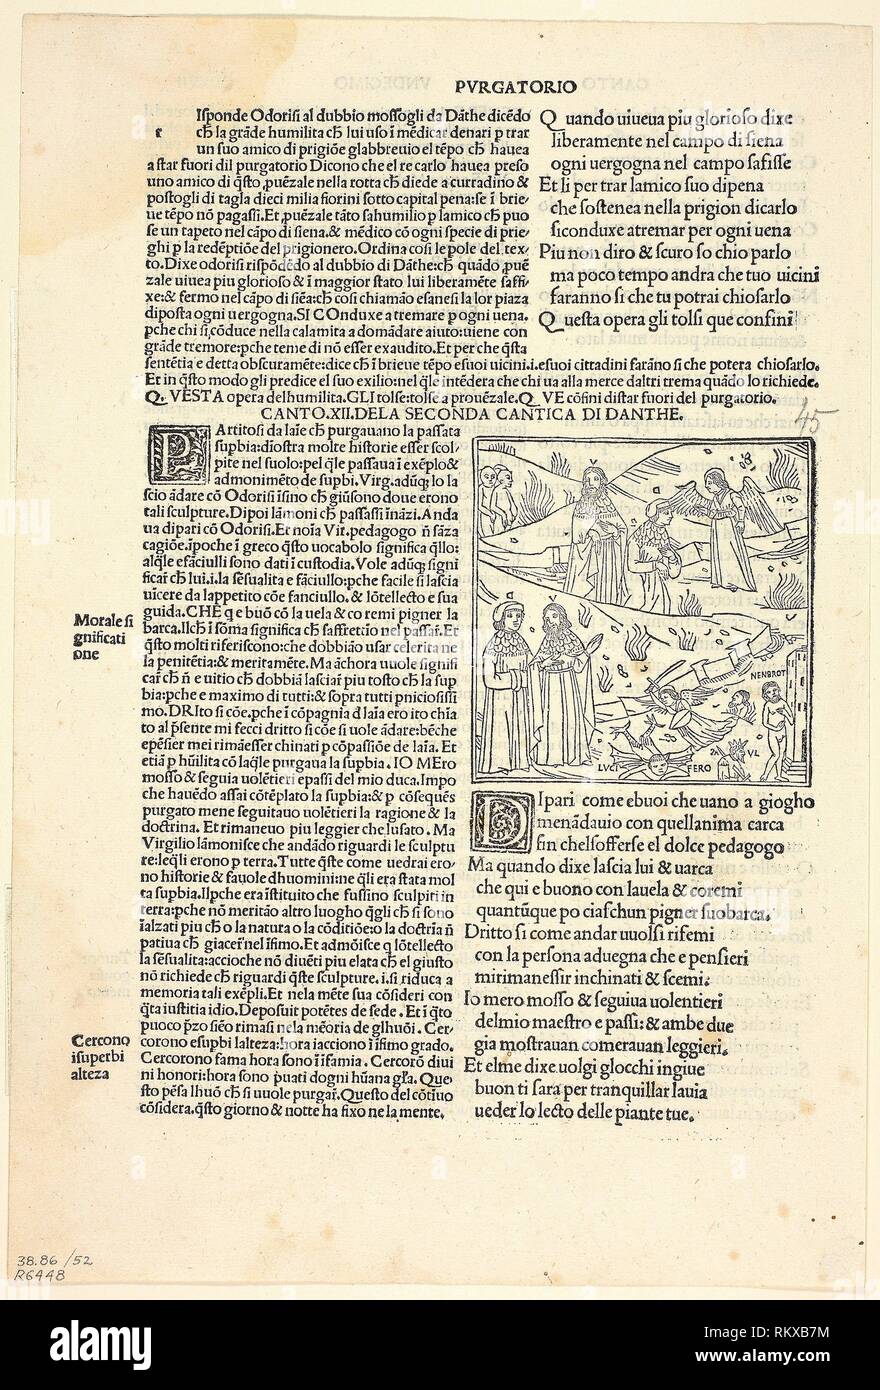 PVRGATORIO
Isponde Odorisi al dubbio mossogli da Dãthe dicẽdo
r
ch la grãde humilita ch lui uso ĩ mẽdicar denari p trar
un suo amico di prigiõe glabbreuio el tẽpo ch hauea
a star fuori dil purgatorio Dicono che el re carlo hauea preso
uno amico di q̃sto ,puẽzale nella rotta ch diede a curradino &
postogli di tagla dieci milia fiorini sotto capital pena:se ĩ brie/
ue tẽpo nõ pagassi.Et ,puẽzale tãto sahumilio p lamico ch puo
se un tapeto nel cãpo di siena.& mẽdico cõ ogni specie di prie/
ghi p la redẽptiõe del prigionero.Ordina cosi le pole del tex/
to.Dixe odorisi rispõdẽdo al dubbio di Dãthe:ch quãdo ,puẽ
zale uiuea piu glorioso & ĩ maggior stato lui liberamẽte saffi/
xe:& fermo nel cãpo di siẽa:ch cosi chiamão esanesi la lor piaza
diposta ogni uergogna.SI COnduxe a tremare p ogni uena.
pche chi si cõduce nella calamita a domãdare aiuto:uiene con
grãde tremore:pche teme di nõ esser exaudito.Et per che q̃sta
Q uando uiueua piu glorioso dixe
liberamente nel campo di siena
ogni uergogna nel campo safisse
Et li per trar lamico suo dipena
che sostenea nella prigion dicarlo
siconduxe atremar per ogni uena
Piu non diro & scuro so chio parlo
ma poco tempo andra che tuo uicini
faranno si che tu potrai chiosarlo
Q uesta opera gli tolsi que confini
sentẽtia e detta obscuramẽte:dice ch ĩ brieue tẽpo esuoi uicini.i.esuoi cittadini farãno si che potera chiosarlo.
Et in q̃sto modo gli predice el suo exilio:nel q̃le intẽdera che chi ua alla merce daltri trema quãdo lo richiede.
Q VESTA opera delhumilita.GLI tolse:tolse a prouẽzale.Q VE cõfini distar fuori del purgatorio.
CANTO.XII.DELA SECONDA CANTICA DI DANTHE.
45
PArtitosi da laĩe ch purgauano la passata
supbia:diostra molte historie esser scol/
pite nel suolo:pel q̃le passaua ĩ exẽplo&
admonimẽto de supbi.Virg.adũq̃ lo la
scio ãdare cõ Odorisi ĩsino ch giũsono doue erono
tali sculpture.Dipoi lãmoni ch passassi ĩnãzi.Anda
ua dipati cõ Odorisi.Et noĩa Vir.pedagogo ñ sãza
cagiõe.ĩpoche ĩ greco q̃sto uocabolo significa q̃llo:
alq̃le efãciulli sono dati ĩ custodia.Vole adũq̃ signi
ficar ch lui.i.la sẽsualita e fãciullo:pche facile si lascia
uicere da lappetito cõe fanciullo.& lõtellecto e sua
guida.CHE q e buõ cõ la uela & co remi pigner la
barca.Ilch ĩ sõma significa ch saffretião nel passar.Et
q̃sto molti riferiscono:che dobbião usar celerita ne
la penitẽtia:& meritamẽte.Ma ãchora uuole signifi
car ch ñ e uitio ch dobbiã lasciar piu tosto ch la sup
bia:pche e maximo di tutti:& sopra tutti pniciosissi
mo.DRIto si cõe.pche ĩ cõpagnia d laĩa ero ito chia
to al p̃sente mi fecci dritto si cõe si uole ãdare:bẽche
epẽsier mei rimãesser chinati p cõpassiõe de laĩa. Et
etiã p hũilita cõ laq̃le purgaua la supbia. IO MEro
mosso & seguia uolẽtieri epassi del mio duca. Impo
che hauẽdo assai cõtẽplato la supbia:& p cõsequẽs
purgato mene seguitauo uolẽtieri la ragione & la
doctrina. Et rimaneuo piu leggier chelusato. Ma
Virgilio lãmonisce che andãdo riguardi le sculptu
re:leq̃li erono p terra.Tutte q̃ste come uedrai ero/
no historie & fauole dhuomini:ne q̃li era stata mol
ta supbia.Ilpche era ĩstituito che fussino sculpiti in
terra:pche nõ meritão altro luogho q̃gli ch si sono
ĩalzati piu ch o la natura o la cõditiõe:o la doctrĩa ñ
patiua ch giacer nel ĩfimo.Et admõisce q lõtellecto
la sẽsualita:accioche nõ diuẽti piu elata ch el giusto
nõ richiede ch riguardi q̃ste sculpture.i.si riduca a
memoria tali exẽpli.Et nela mẽte sua cõsideri con
q̃ta iustitia idio.Deposuit potẽtes de sede. Et ĩ q̃to
puoco p̃zo siẽo rimasi nela mẽoria de glhuõi. Cer/
corono esupbi lalteza:hora iacciono ĩ ĩfimo grado.
Cercorono fama hora sono ĩ ĩfamia. Cercorõ diui
ni honori:hora sono p̃uati dogni hũana gr̃a. Que
sto pẽsa lhuõ ch si uuole purgar̃.Questo del cõtĩuo
cõsidera.q̃sto giorno & notte ha fixo ne la mente.
Morale si
gnificati
one
Cercono
isuperbi
alteza
V
D
V
D
NENBROT
LVCI FERO
SA VL
DIpari come ebuoi che uano a giogho
menãdauio con quellanima carca
fin chelsofferse el dolce pedagogo
Ma quando dixe lascia lui & uarca
che qui e buono con lauela & coremi
quantũque po ciaschun pigner suobarca.
Dritto si come andar uuolsi rifemi
con la persona aduegna che e pensieri
mirimanessir inchinati & scemi.
Io mero mosso & seguiua uolentieri
delmio maestro e passi:& ambe due
gia mostrauan comerauan leggieri.
Et elme dixe uolgi glocchi ingiue
buon ti sara per tranquillar lauia
ueder lo lecto delle piante tue.
38.86 /52
R6448
alamy
Image ID: RKXB7M
www.alamy.com